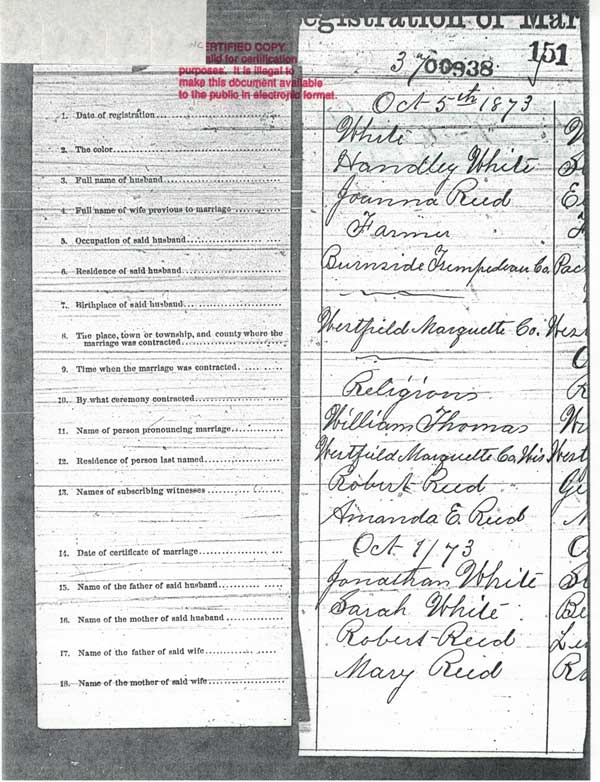 egistration of Mar
151
3 00938
CERTIFIED COPY
lid for certification
purposes. It is illegal to
make this document available
to the public in electronic format.
1. Date of registration Oct 5th 1873
2. The color White
3. Full name of husband Handley White
4. Full name of wife previous to marriage Joanna Reed
5. Occupation of said husband Farmer
6. Residence of said husband Burnside Trempedeau Co. Pac
7. Birthplace of said husband
8. The place, town or township, and county where the
marriage was contracted Westfield Marquette Co. West
9. Time when the marriage was contracted
10. By what ceremony contracted Religious
11. Name of person pronouncing marriage William Thomas
12. Residence of person last named Westfield Marquette Co. Wis West
13. Names of subscribing witnesses Robert Reed
Amanda E. Reed
14. Date of certificate of marriage Oct 1/73
15. Name of the father of said husband Jonathan White
16. Name of the mother of said husband Sarah White
17. Name of the father of said wife Robert Reed
18. Name of the mother of said wife Mary Reed